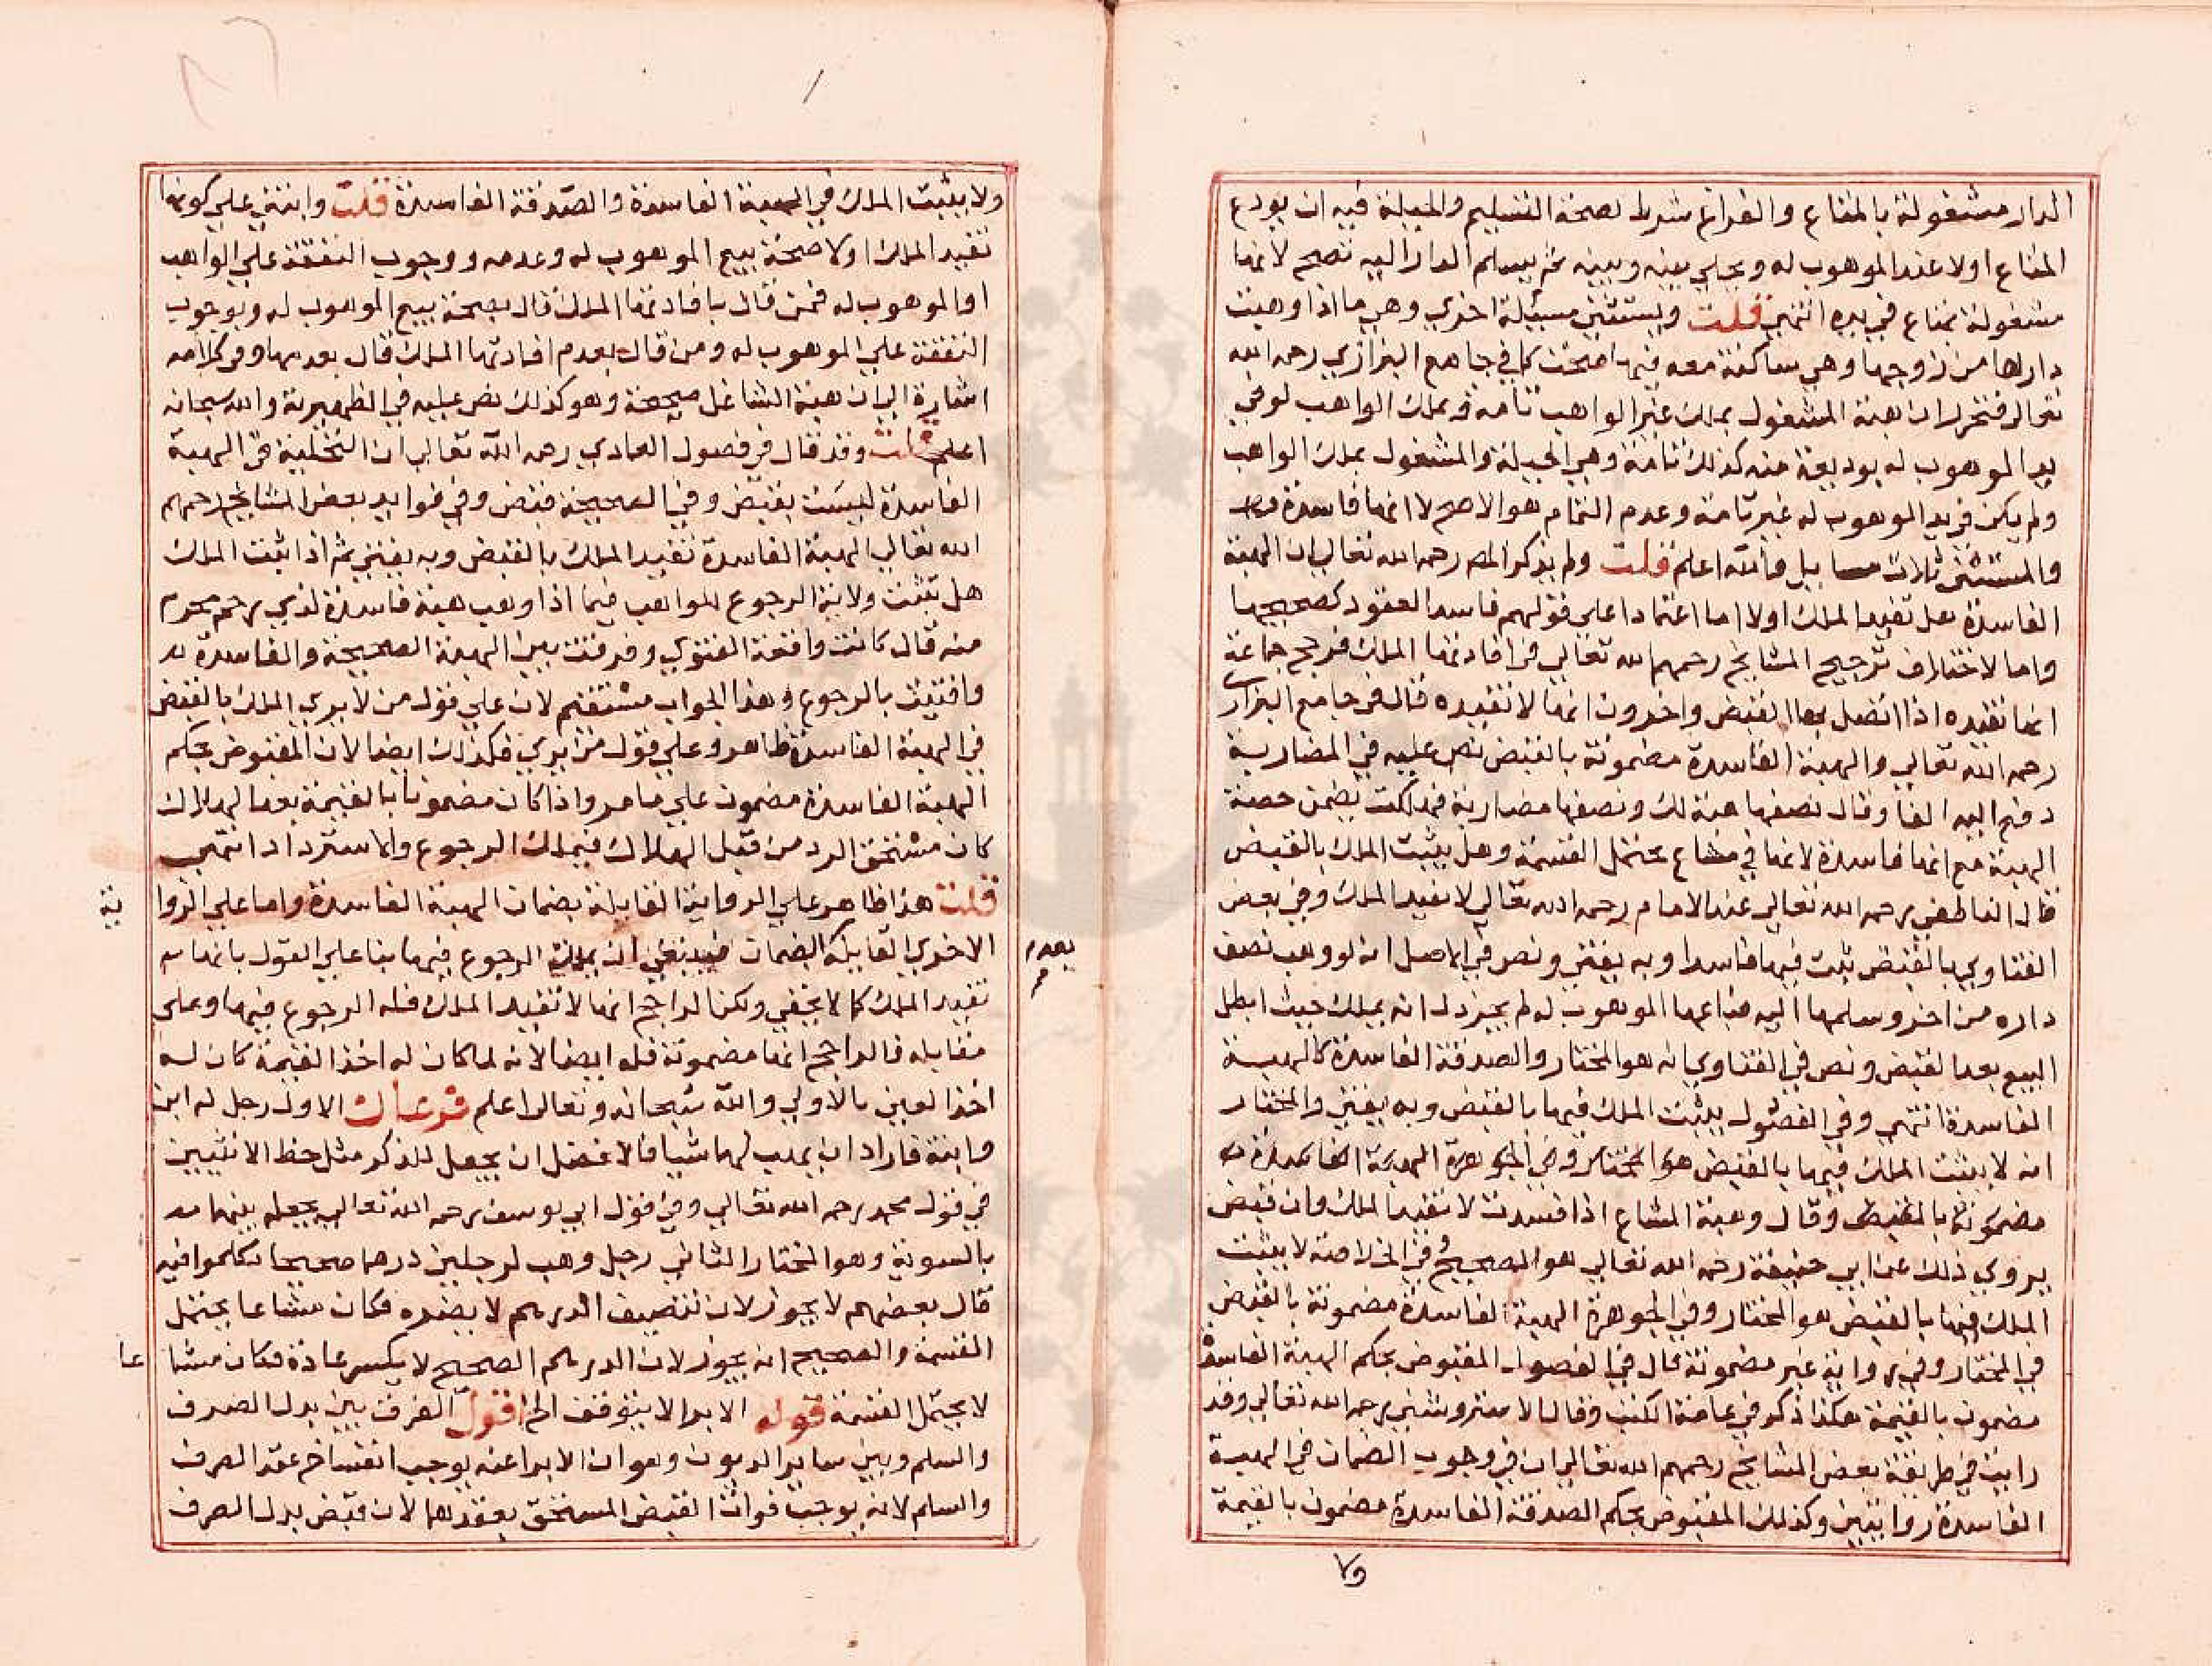 الدار مشغولة بالمتاع والفراغ شرط لصحة التسليم والحيلة فيه ان يودع
المتاع اولا عند الموهوب له ويخلي بينه وبينه ثم يسلم الدار اليه تصح لانها
مشغولة بمتاع في يده انتهى قلت ويستثنى مسئلة اخري وهي ما اذا وهبت
دارها من زوجها وهي ساكنة معه فيها صحت كما في جامع البزازي رحمه الله
تعالى فتحرر ان هبة المشغول بملك غير الواهب تامة وبملك الواهب لو في
يد الموهوب له بوديعة منه كذلك تامة وهي الحيلة والمشغول بملك الواهب
ولم يكن في يد الموهوب له غير تامة وعدم التمام هو الاصح لا انها فاسدة
والمستثنى ثلاث مسايل والله اعلم قلت ولم يذكر المص رحمه الله تعالى ان الهبة
الفاسدة هل تفيد الملك اولا اما اعتمادا على قولهم فاسد العقود كصحيحها
واما لاختلاف ترجيح المشايخ رحمهم الله تعالى في افادتها الملك فرجح جماعة
انها تفيده اذا اتصل بها القبض واخرون انها لا تفيده قال في جامع البزازي
رحمه الله تعالى والهبة الفاسدة مضمونة بالقبض نص عليه في المضاربة
دفع اليه الفا وقال نصفها هبة لك ونصفها مضاربة فهلكت يضمن حصة
الهبة مع انها فاسدة لانها في مشاع يحتمل القسمة وهل يثبت الملك بالقبض
قال الناطفي رحمه الله تعالى عند الامام رحمه الله تعالى لا تفيد الملك وفي بعض
الفتاوي بالقبض يثبت فيها فاسدا وبه يفتى ونص في الاصل انه لو وهب نصف
داره من اخر وسلمها اليه فباعها الموهوب له لم يجز دل انه يملك حيث ابطل
البيع بعد القبض ونص في الفتاوي انه هو المختار والصدقة الفاسدة كالهبة
الفاسدة انتهى وفي الفصول يثبت الملك فيها بالقبض وبه يفتى والمختار
انه لا يثبت الملك فيها بالقبض هو المختار وفي الجوهرة الهبة الفاسدة
مضمونة بالقبض وقال وهبة المشاع اذا فسدت لا تفيد الملك وان قبض
يروي ذلك عن ابي حنيفة رحمه الله تعالى هو الصحيح وفي الخلاصة لا يثبت
الملك فيها بالقبض هو المختار وفي الجوهرة الهبة الفاسدة مضمونة بالقبض
في المختار وفي رواية غير مضمونة قال في الفصول المقبوض بحكم الهبة الفاسدة
مضمون بالقيمة هكذا ذكر في عامة الكتب وقال الاستروشني رحمه الله تعالى وقد
رايت في طريقة بعض المشايخ رحمهم الله تعالى ان في وجوب الضمان في الهبة
الفاسدة روايتين وكذلك المقبوض بحكم الصدقة الفاسدة مضمون بالقيمة
ولا
ولا يثبت الملك في الهبة الفاسدة والصدقة الفاسدة قلت وابتني على كونها
تفيد الملك اولا صحة بيع الموهوب له وعدمه ووجوب النفقة على الواهب
او الموهوب له فمن قال بافادتها الملك قال بصحة بيع الموهوب له وبوجوب
النفقة على الموهوب له ومن قال بعدم افادتها الملك قال بعدمها وفي كلامه
اشارة الى ان هبة الشاغل صحيحة وهو كذلك نص عليه في الظهيرية والله سبحانه
اعلم قلت وقد قال في فصول العمادي رحمه الله تعالى ان التخلية في الهبة
الفاسدة ليست بقبض وفي الصحيحة قبض وفي فوايد بعض المشايخ رحمهم
الله تعالى الهبة الفاسدة تفيد الملك بالقبض وبه يفتى ثم اذا ثبت الملك
هل تثبت ولاية الرجوع للواهب فيما اذا وهب هبة فاسدة لذي رحم محرم
منه قال كانت واقعة الفتوي وفرقت بين الهبة الصحيحة والفاسدة
وافتيت بالرجوع وهذا الجواب مستقيم لان على قول من لا يري الملك بالقبض
في الهبة الفاسدة ظاهر وعلى قول من يري فكذلك ايضا لان المقبوض بحكم
الهبة الفاسدة مضمون على ما مر واذا كان مضمونا بالقيمة بعد الهلاك
كان مستحق الرد من قبل الهلاك فيملك الرجوع والاسترداد انتهى
قلت هذا ظاهر على الرواية القايلة بضمان الهبة الفاسدة واما على الروا
ية
الاخري القايلة الضمان فينبغي ان يملك الرجوع فيها بنا على القول بانها
بعدم
تفيد الملك كما لا يخفى ولكن الراجح انها لا تفيد الملك فله الرجوع فيها وعلى
مقابله فالراجح انها مضمونة فله ايضا لانه لما كان له اخذ القيمة كان له
اخذ العين بالاولى والله سبحانه وتعالى اعلم فرعان الاول رجل له ابن
وابنة فاراد ان يهب لهما شيا فالافضل ان يجعل للذكر مثل حظ الانثيين
في قول محمد رحمه الله تعالى وفي قول ابي يوسف رحمه الله تعالى يجعله بينهما
بالسوية وهو المختار الثاني رجل وهب لرجلين درهما صحيحا تكلموا فيه
قال بعضهم لا يجوز لان تنصيف الدرهم لا يضره فكان مشاعا يحتمل
القسمة والصحيح انه يجوز لان الدرهم الصحيح لا يكسر عادة فكان مشا
عا
لا يحتمل القسمة قوله الابرا لا يتوقف الخ اقول الفرق بين بدل الصرف
والسلم وبين ساير الديون وهو ان الابرا عنه يوجب انفساخ عقد الصرف
والسلم لانه يوجب فوات القبض المستحق بعقدهما لان قبض بدل الصرف